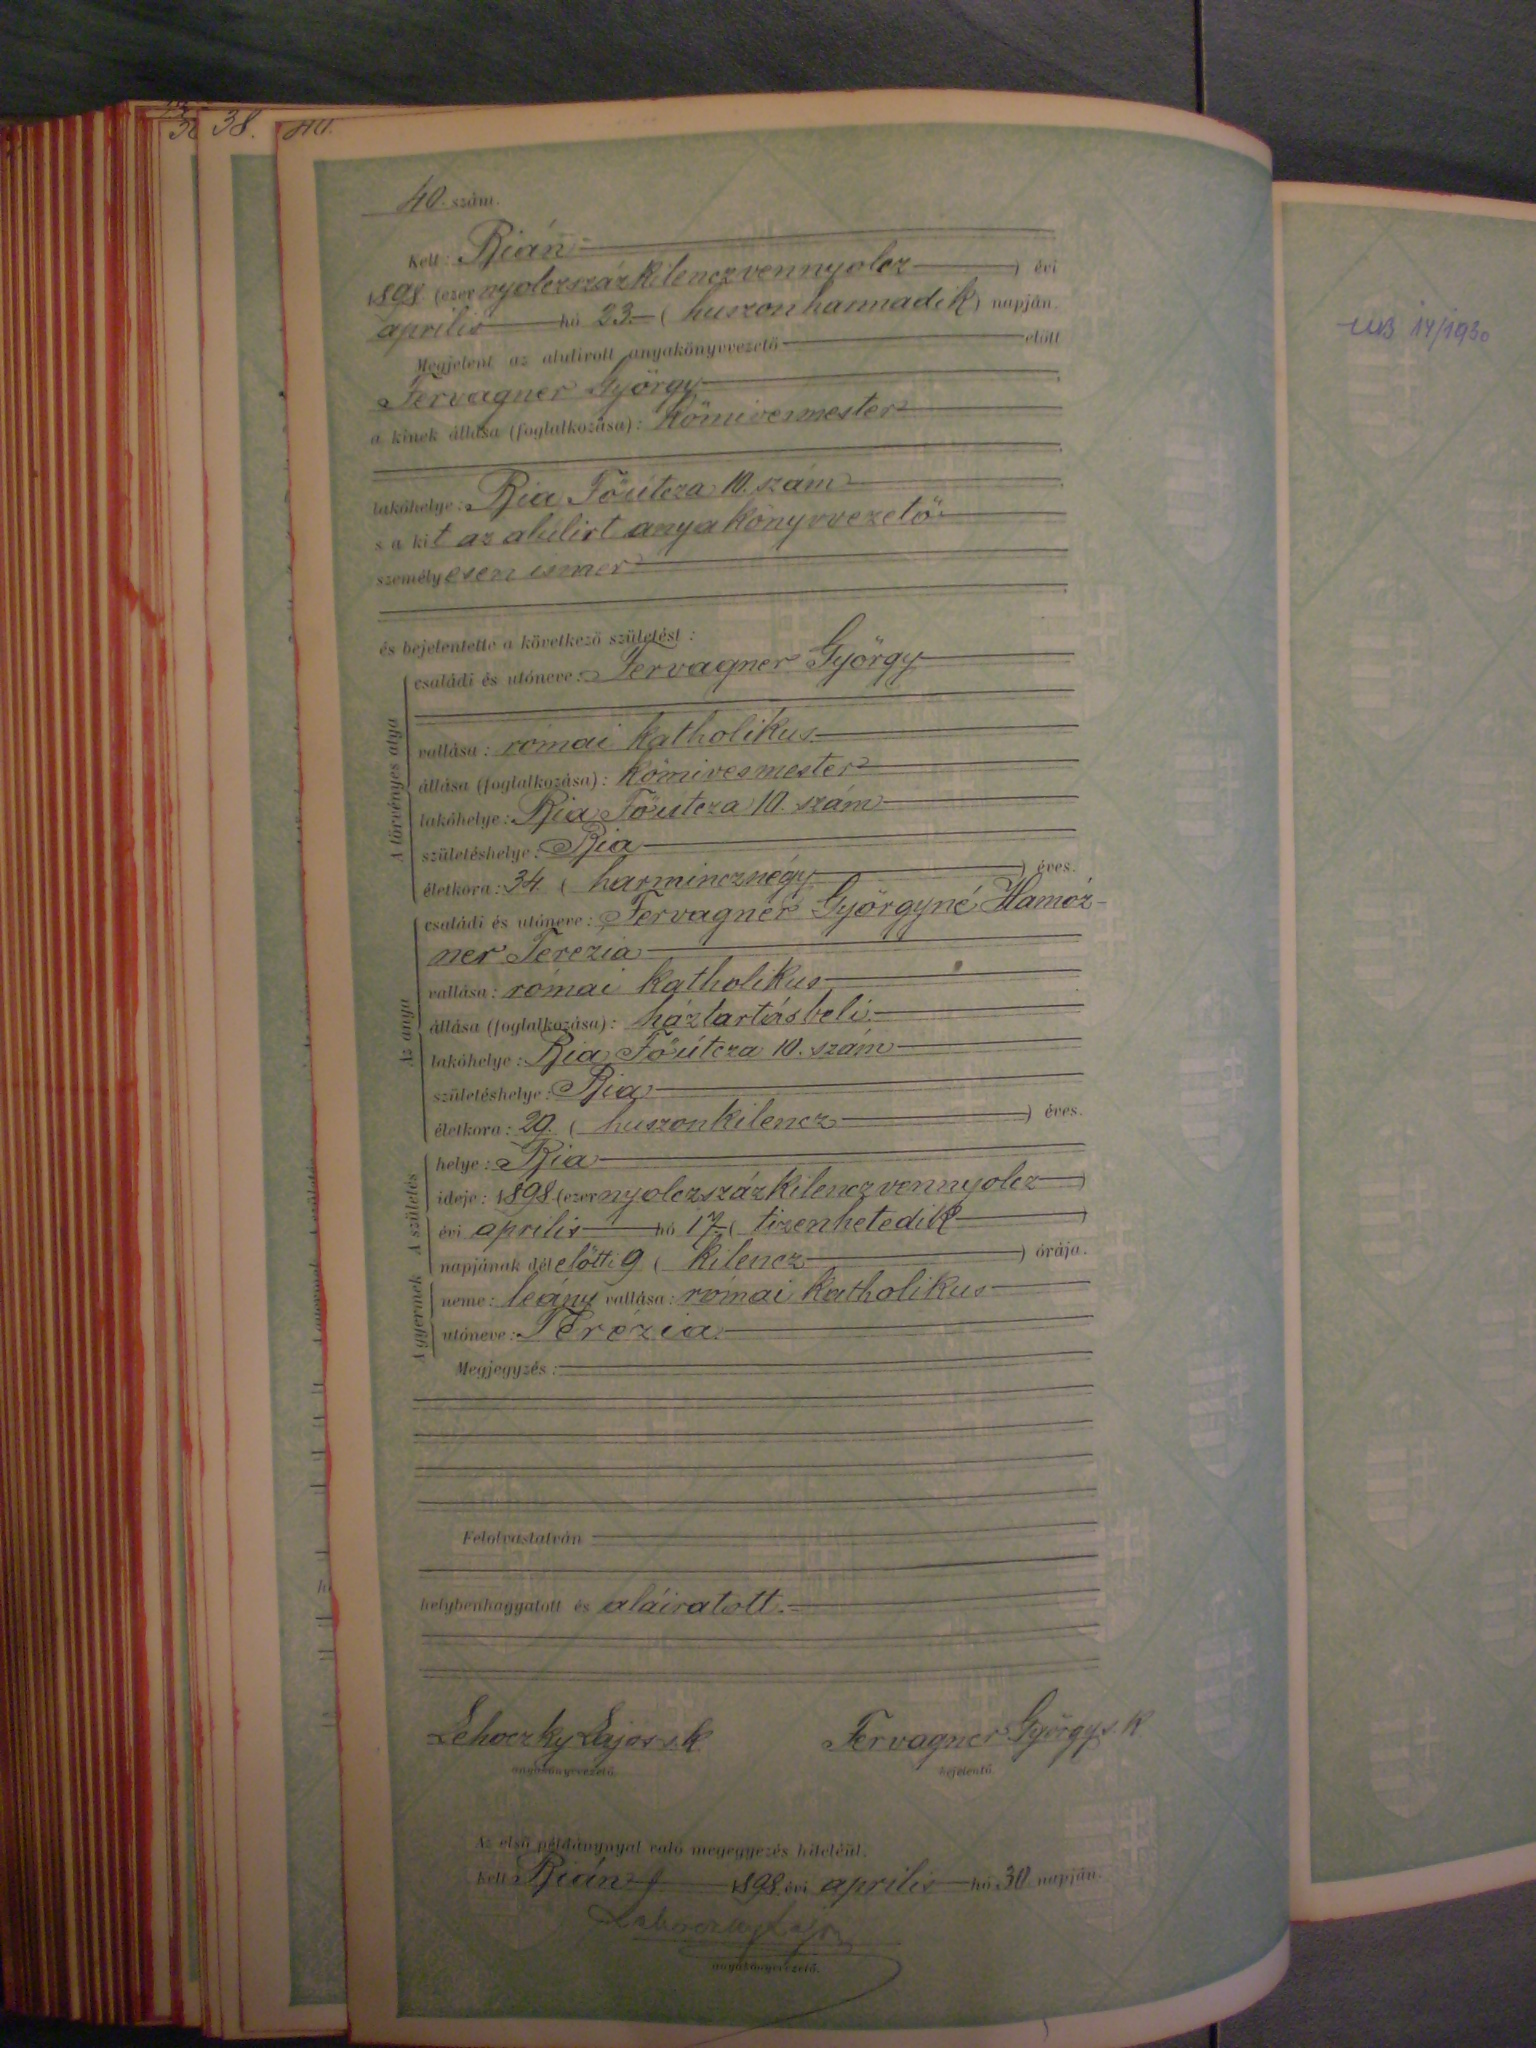 38.
40. szám.
Kelt: Bián
1898. (ezernyolczszázkilenczvennyolcz) évi
április hó 23. (huszonharmadik) napján.
Megjelent az alulirott anyakönyvvezető előtt
Fervagner György
a kinek állása (foglalkozása): kőmivesmester
lakóhelye: Bia Főútcza 10. szám
s a kit az alulirt anyakönyvvezető
személyesen ismer
és bejelentette a következő születést:
A törvényes atya
családi és utóneve: Fervagner György
vallása: római katholikus
állása (foglalkozása): kőmivesmester
lakóhelye: Bia Főutcza 10. szám
születéshelye: Bia
életkora: 34 (harmincznégy) éves.
Az anya
családi és utóneve: Fervagner Györgyné Hamóz-
ner Terézia
vallása: római katholikus
állása (foglalkozása): háztartásbeli.
lakóhelye: Bia Főútcza 10. szám
születéshelye: Bia
életkora: 29. (huszonkilencz) éves.
A születés
helye: Bia
ideje: 1898. (ezernyolczszázkilenczvennyolcz)
évi április hó 17. (tizenhetedik)
napjának délelőtti 9 (kilencz) órája.
A gyermek
neme: leány vallása: római katholikus
utóneve: Terézia.
Megjegyzés:
Felolvastatván
helybenhagyatott és aláiratott.
Lehoczky Lajos s.k. Fervagner György s.k
anyakönyvvezető. bejelentő.
Az első példánynyal való megegyezés hiteléül.
Kelt Bián 1898. évi április hó 30 napján.
Lehoczky Lajos
anyakönyvvezető.
14/1930